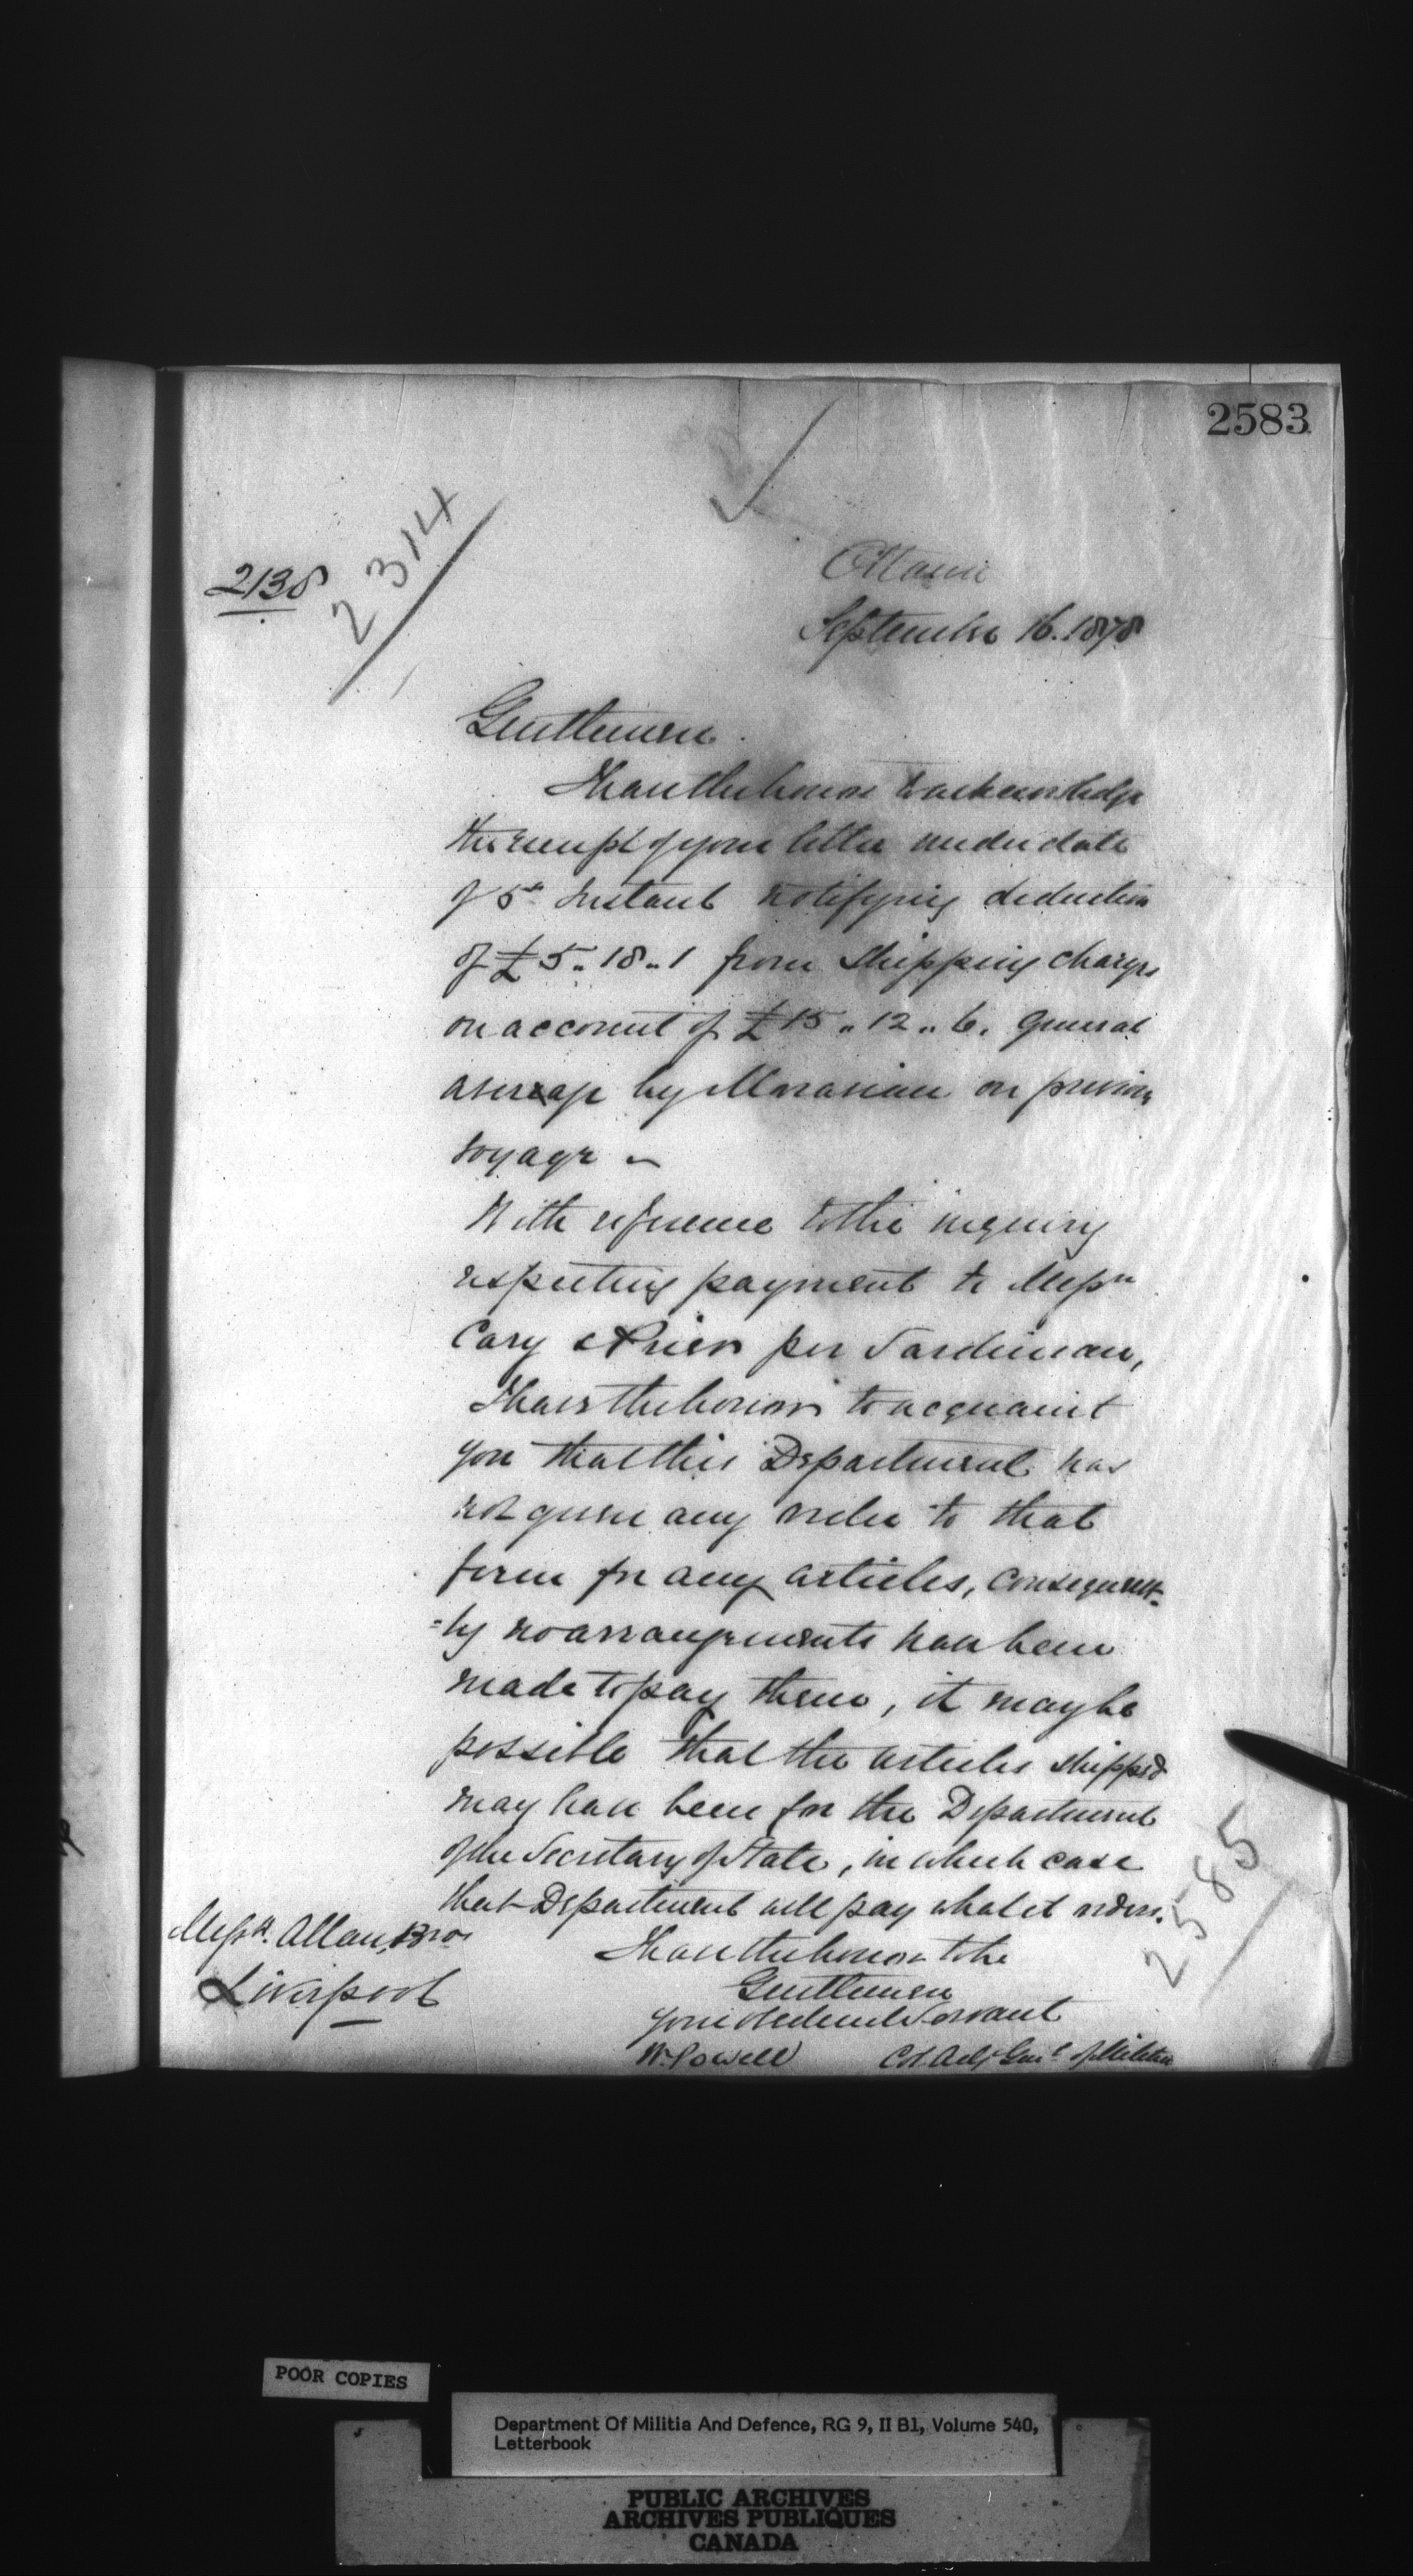 2583
2314
2138
Ottawa
September 16. 1878
Gentlemen.
I have the honor to acknowledge
the receipt of your letter under date
of 5th Instant notifying deduction
of £5.. 18..1 from Shipping charges
on account of £15.. 12.. 6. General
average by Moravian on previous
voyage ~
With reference to the inquiry
respecting payment to Messrs
Cary & per Sardinian,
I have the honor to acquaint
you that this Department has
not given any order to that
firm for any articles, consequent-
=ly no arrangements have been
made to pay them, it may be
possible that the articles shipped
may have been for the Department
of the Secretary of State, in which case
that Department will pay what it orders.
2585
Messrs. Allan, Bros
Liverpool
I have the honor to be
Gentlemen
your obedient Servant
W. Powell Col. Adjt Genl of Militia
POOR COPIES
Department Of Militia And Defence, RG 9, II B1, Volume 540,
Letterbook
PUBLIC ARCHIVES
ARCHIVES PUBLIQUES
CANADA